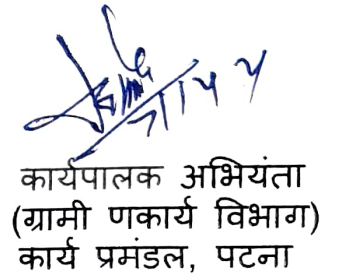 कार्यपालक अभियंता
(ग्रामी णकार्य विभाग)
कार्य प्रमंडल, पटना